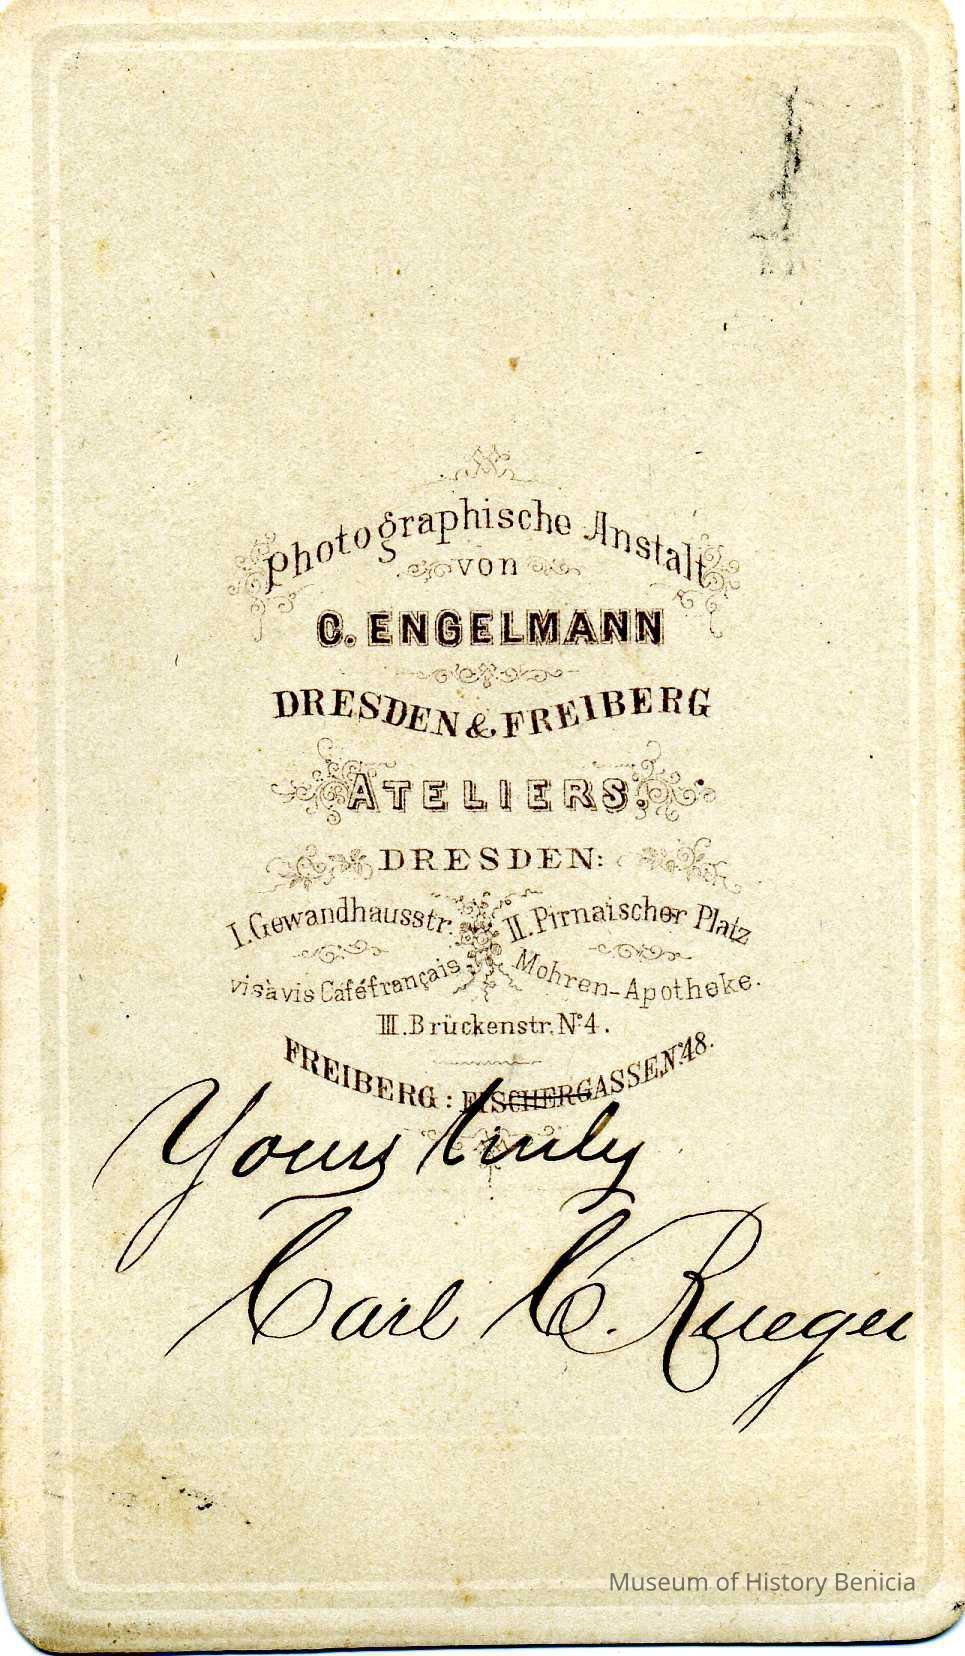 Photographische Anstalt
von
C. ENGELMANN
DRESDEN & FREIBERG
ATELIERS.
DRESDEN:
I. Gewandhausstr. II. Pirnaischer Platz
vis à vis Café français Mohren-Apotheke.
III. Brückenstr. No 4.
FREIBERG: FISCHERGASSE No 48.
Yours truly
Carl C. Rueger
Museum of History Benicia